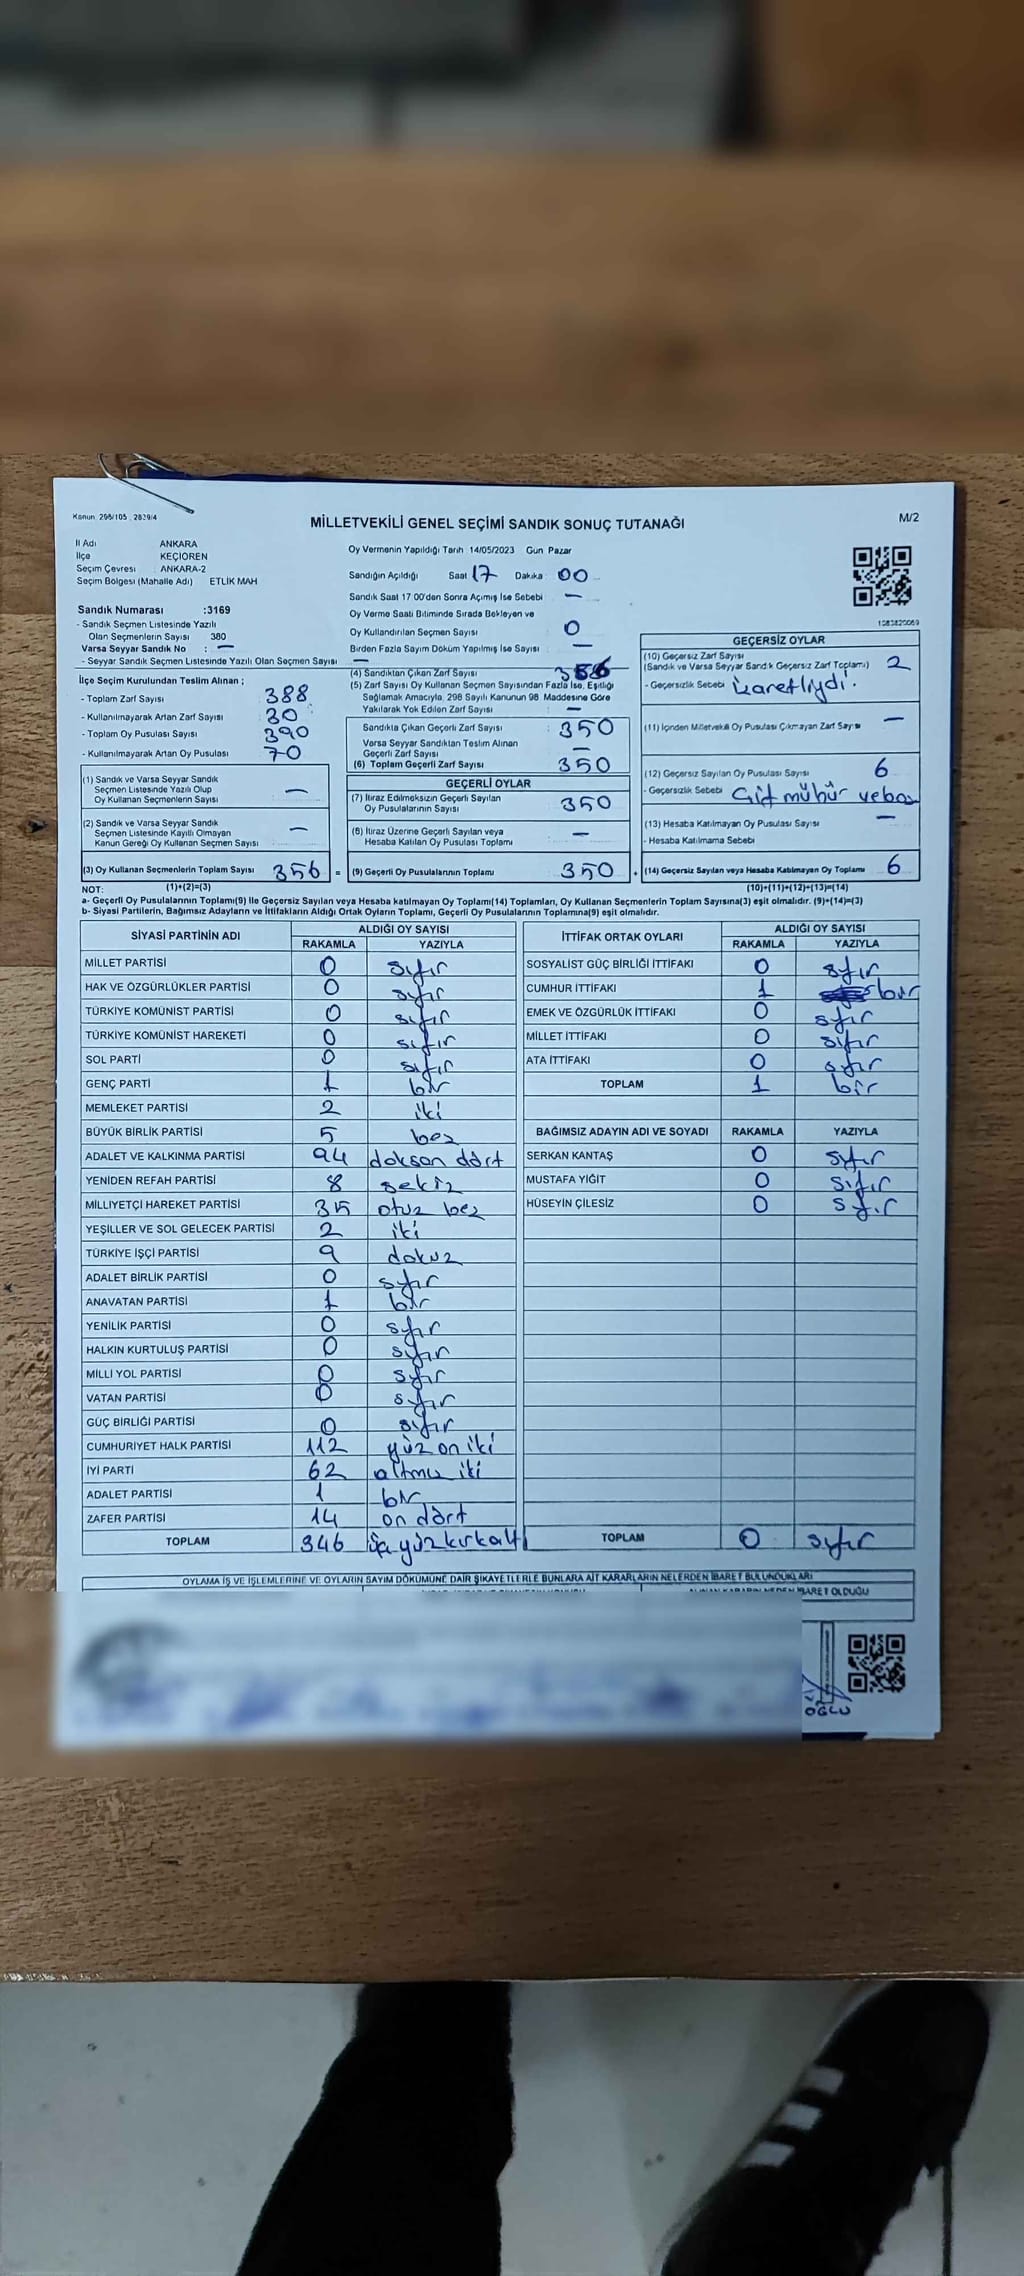 Kanun: 298/105, 2839/4
MİLLETVEKİLİ GENEL SEÇİMİ SANDIK SONUÇ TUTANAĞI
M/2
İl Adı ANKARA
İlçe KEÇİÖREN
Seçim Çevresi : ANKARA-2
Seçim Bölgesi (Mahalle Adı) ETLİK MAH
Sandık Numarası :3169
- Sandık Seçmen Listesinde Yazılı
Olan Seçmenlerin Sayısı 380
Varsa Seyyar Sandık No : —
- Seyyar Sandık Seçmen Listesinde Yazılı Olan Seçmen Sayısı —
İlçe Seçim Kurulundan Teslim Alınan ;
- Toplam Zarf Sayısı 388
- Kullanılmayarak Artan Zarf Sayısı 30
- Toplam Oy Pusulası Sayısı 390
- Kullanılmayarak Artan Oy Pusulası 70
(1) Sandık ve Varsa Seyyar Sandık
Seçmen Listesinde Yazılı Olup
Oy Kullanan Seçmenlerin Sayısı —
(2) Sandık ve Varsa Seyyar Sandık
Seçmen Listesinde Kayıtlı Olmayan
Kanun Gereği Oy Kullanan Seçmen Sayısı —
(3) Oy Kullanan Seçmenlerin Toplam Sayısı 356 =
Oy Vermenin Yapıldığı Tarih 14/05/2023 Gün Pazar
Sandığın Açıldığı Saat 17 Dakika : 00
Sandık Saat 17:00'den Sonra Açılmış İse Sebebi : —
Oy Verme Saati Bitiminde Sırada Bekleyen ve
Oy Kullandırılan Seçmen Sayısı 0
Birden Fazla Sayım Döküm Yapılmış İse Sayısı : —
(4) Sandıktan Çıkan Zarf Sayısı 356
(5) Zarf Sayısı Oy Kullanan Seçmen Sayısından Fazla İse, Eşitliği
Sağlamak Amacıyla, 298 Sayılı Kanunun 98. Maddesine Göre
Yakılarak Yok Edilen Zarf Sayısı —
Sandıkta Çıkan Geçerli Zarf Sayısı : 350
Varsa Seyyar Sandıktan Teslim Alınan
Geçerli Zarf Sayısı —
(6) Toplam Geçerli Zarf Sayısı : 350
GEÇERLİ OYLAR
(7) İtiraz Edilmeksizin Geçerli Sayılan
Oy Pusulalarının Sayısı : 350
(8) İtiraz Üzerine Geçerli Sayılan veya
Hesaba Katılan Oy Pusulası Toplamı : —
(9) Geçerli Oy Pusulalarının Toplamı : 350 +
1083820069
GEÇERSİZ OYLAR
(10) Geçersiz Zarf Sayısı
(Sandık ve Varsa Seyyar Sandık Geçersiz Zarf Toplamı) 2
- Geçersizlik Sebebi işaretliydi.
(11) İçinden Milletvekili Oy Pusulası Çıkmayan Zarf Sayısı —
(12) Geçersiz Sayılan Oy Pusulası Sayısı 6
- Geçersizlik Sebebi Çift mühür ve boş
(13) Hesaba Katılmayan Oy Pusulası Sayısı —
- Hesaba Katılmama Sebebi
(14) Geçersiz Sayılan veya Hesaba Katılmayan Oy Toplamı 6
NOT: (1)+(2)=(3) (10)+(11)+(12)+(13)=(14)
a- Geçerli Oy Pusulalarının Toplamı(9) ile Geçersiz Sayılan veya Hesaba katılmayan Oy Toplamı(14) Toplamları, Oy Kullanan Seçmenlerin Toplam Sayısına(3) eşit olmalıdır. (9)+(14)=(3)
b- Siyasi Partilerin, Bağımsız Adayların ve İttifakların Aldığı Ortak Oyların Toplamı, Geçerli Oy Pusulalarının Toplamına(9) eşit olmalıdır.
SİYASİ PARTİNİN ADI ALDIĞI OY SAYISI
RAKAMLA YAZIYLA
MİLLET PARTİSİ 0 sıfır
HAK VE ÖZGÜRLÜKLER PARTİSİ 0 sıfır
TÜRKİYE KOMÜNİST PARTİSİ 0 sıfır
TÜRKİYE KOMÜNİST HAREKETİ 0 sıfır
SOL PARTİ 0 sıfır
GENÇ PARTİ 1 bir
MEMLEKET PARTİSİ 2 iki
BÜYÜK BİRLİK PARTİSİ 5 beş
ADALET VE KALKINMA PARTİSİ 94 doksan dört
YENİDEN REFAH PARTİSİ 8 sekiz
MİLLİYETÇİ HAREKET PARTİSİ 35 otuz beş
YEŞİLLER VE SOL GELECEK PARTİSİ 2 iki
TÜRKİYE İŞÇİ PARTİSİ 9 dokuz
ADALET BİRLİK PARTİSİ 0 sıfır
ANAVATAN PARTİSİ 1 bir
YENİLİK PARTİSİ 0 sıfır
HALKIN KURTULUŞ PARTİSİ 0 sıfır
MİLLİ YOL PARTİSİ 0 sıfır
VATAN PARTİSİ 0 sıfır
GÜÇ BİRLİĞİ PARTİSİ 0 sıfır
CUMHURİYET HALK PARTİSİ 112 yüz on iki
İYİ PARTİ 62 altmış iki
ADALET PARTİSİ 1 bir
ZAFER PARTİSİ 14 on dört
TOPLAM 346 üç yüz kırk altı
İTTİFAK ORTAK OYLARI ALDIĞI OY SAYISI
RAKAMLA YAZIYLA
SOSYALİST GÜÇ BİRLİĞİ İTTİFAKI 0 sıfır
CUMHUR İTTİFAKI 1 bir
EMEK VE ÖZGÜRLÜK İTTİFAKI 0 sıfır
MİLLET İTTİFAKI 0 sıfır
ATA İTTİFAKI 0 sıfır
TOPLAM 1 bir
BAĞIMSIZ ADAYIN ADI VE SOYADI RAKAMLA YAZIYLA
SERKAN KANTAŞ 0 sıfır
MUSTAFA YİĞİT 0 sıfır
HÜSEYİN ÇİLESİZ 0 sıfır
TOPLAM 0 sıfır
OYLAMA İŞ VE İŞLEMLERİNE VE OYLARIN SAYIM DÖKÜMÜNE DAİR ŞİKAYETLERLE BUNLARA AİT KARARLARIN NELERDEN İBARET BULUNDUKLARI
ALINAN KARARIN NEDEN İBARET OLDUĞU
OĞLU